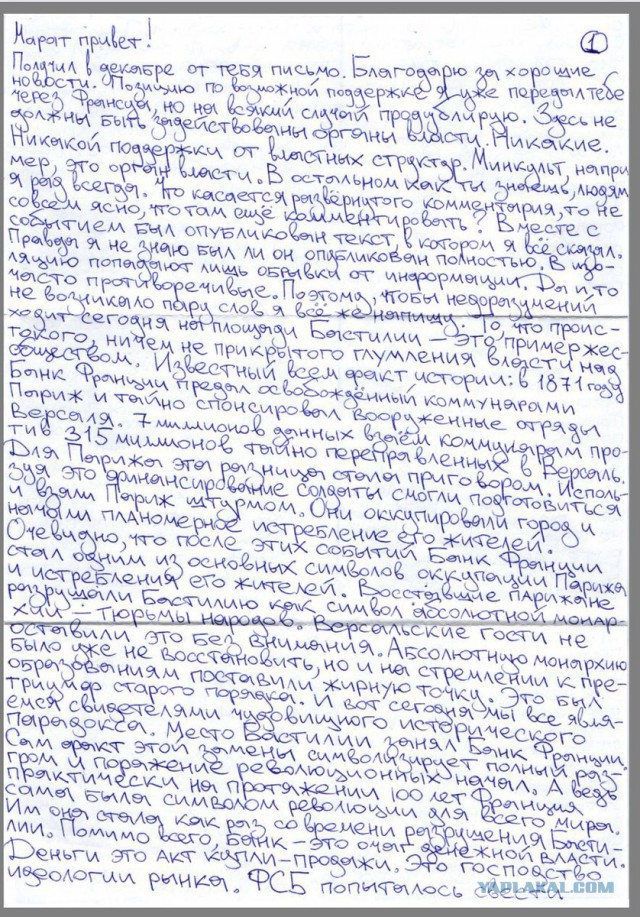 Марат привет!
1
Получил в декабре от тебя письмо. Благодарю за хорошие
новости. Позицию по возможной поддержке я уже передал тебе
через Франсуа, но на всякий случай продублирую. Здесь не
должны быть задействованы органы власти. Никакие.
Никакой поддержки от властных структур. Минкульт, напри
мер, это орган власти. В остальном как ты знаешь, людям
я рад всегда. Что касается развёрнутого комментария, то не
совсем ясно, что там ещё комментировать? Вместе с
событием был опубликован текст, в котором я всё сказал.
Правда я не знаю был ли он опубликован полностью. В изо-
ляцию попадают лишь обрывки от информации. Да и то
часто противоречивые. Поэтому, чтобы недоразумений
не возникало пару слов я всё же напишу. То, что проис-
ходит сегодня на площади Бастилии – это пример жес-
токого, ничем не прикрытого глумления власти над
обществом. Известный всем факт истории: в 1871 году
Банк Франции предал освобождённый коммунарами
Париж и тайно спонсировал вооруженные отряды
Версаля. 7 миллионов данных взаём коммунарам про-
тив 315 миллионов тайно переправленных в Версаль.
Для Парижа эта разница стала приговором. Исполь-
зуя это финансирование солдаты смогли подготовиться
и взяли Париж штурмом. Они оккупировали город и
начали планомерное истребление его жителей.
Очевидно, что после этих событий Банк Франции
стал одним из основных символов оккупации Парижа
и истребления его жителей. Восставшие парижане
разрушали Бастилию как символ абсолютной монар-
хии – тюрьмы народов. Версальские гости не
оставили это без внимания. Абсолютную монархию
было уже не восстановить, но и на стремлении к пре-
образованиям поставили жирную точку. Это был
триумф старого порядка. И вот сегодня мы все явля-
емся свидетелями чудовищного исторического
парадокса. Место Бастилии занял Банк Франции.
Сам факт этой замены символизирует полный раз-
гром и поражение революционных начал. А ведь
практически на протяжении 100 лет Франция
сама была символом революции для всего мира.
Им она стала как раз со времени разрушения Басти-
лии. Помимо всего, банк – это очаг денежной власти.
Деньги это акт купли-продажи. Это господство
идеологии рынка. ФСБ попыталось свести
YAPLAKAL.COM